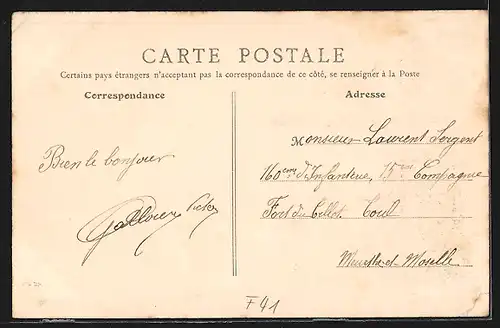 CARTE POSTALE
Certains pays étrangers n'acceptant pas la correspondance de ce côté, se renseigner à la Poste
Correspondance
Adresse
Bien le bonjour
Monsieur Laurent Sergent
160eme d'Infanterie, 15eme Compagnie
Fort du Toul
Meurthe-et-Moselle
F41